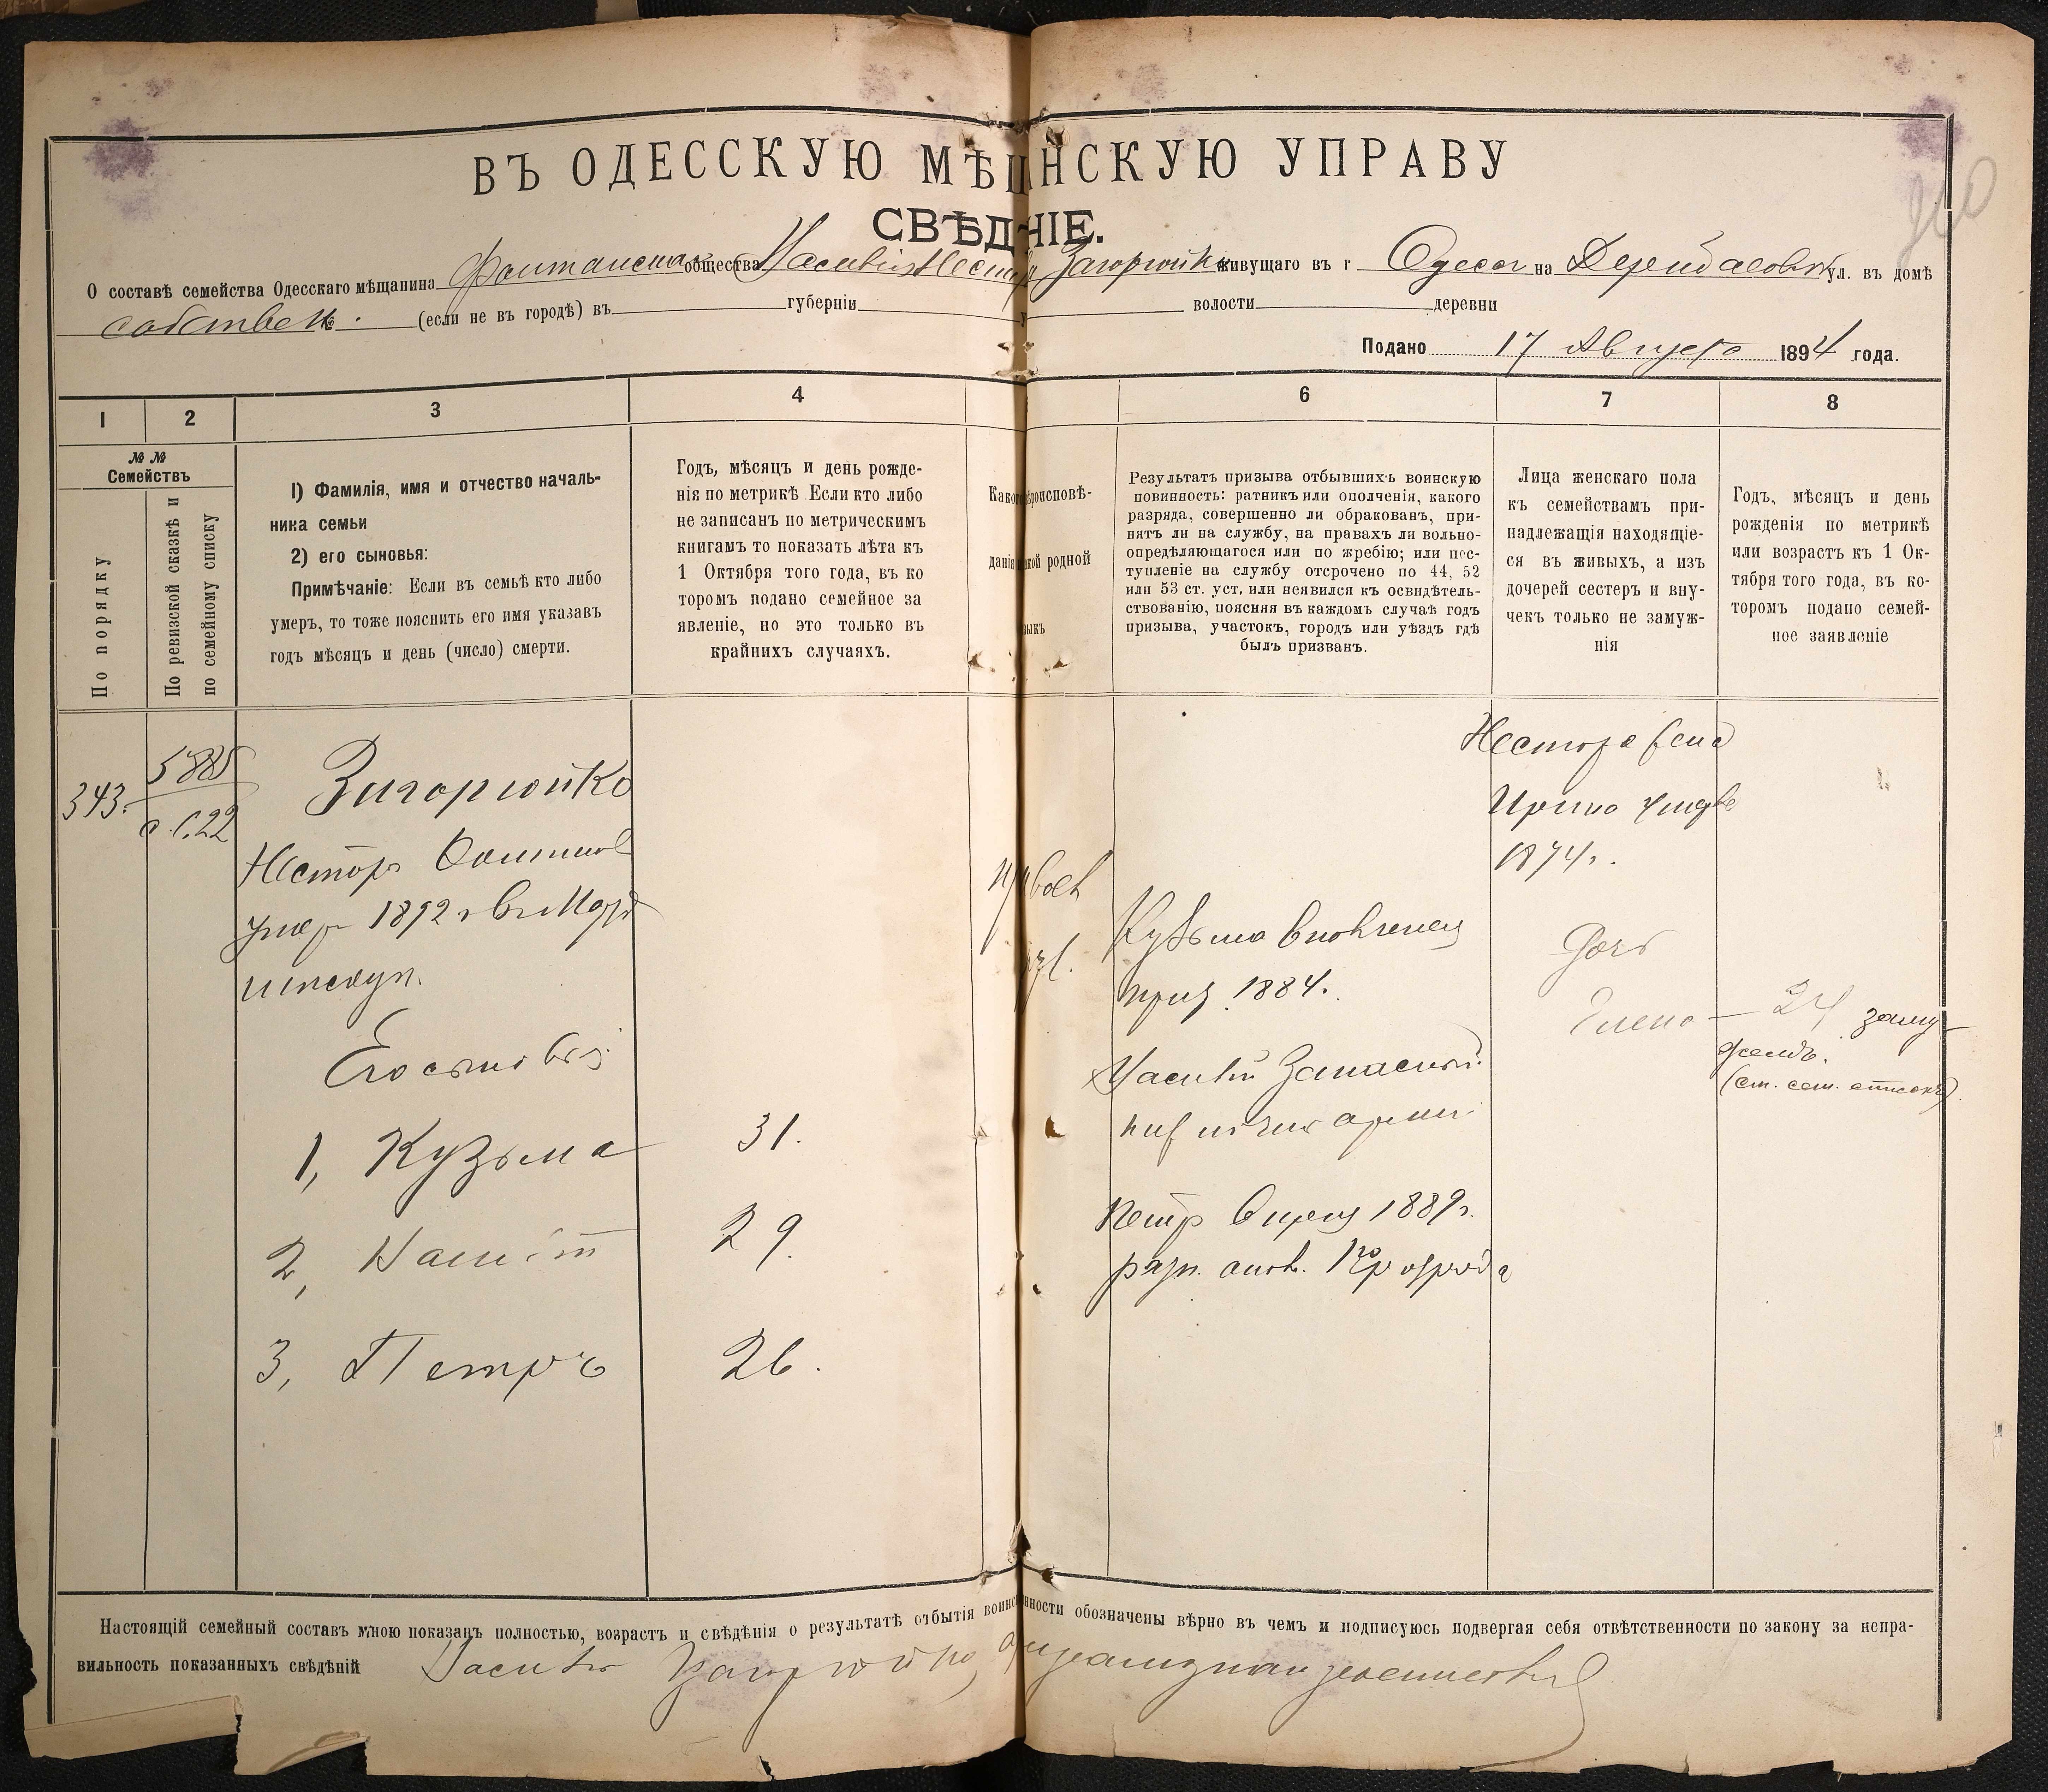 ВЪ ОДЕССКУЮ МѢЩ НСКУЮ УПРАВУ
СВѢД НІЕ.
О составѣ семейства Одесскаго мѣщанина общества живущаго въ г Одессѣ на ул. въ домѣ
собствен. № (если не въ городѣ) въ губерніи у волости деревни
Подано 17 Августа 1894 года.
1 2 3 4 6 7 8
№ № Семействъ
По порядку
По ревизской сказкѣ и
по семейному списку
1) Фамилія, имя и отчество началь-
ника семьи
2) его сыновья:
Примѣчаніе: Если въ семьѣ кто либо
умеръ, то тоже пояснить его имя указавъ
годъ мѣсяцъ и день (число) смерти.
Годъ, мѣсяцъ и день рожде-
нія по метрикѣ. Если кто либо
не записанъ по метрическимъ
книгамъ то показать лѣта къ
1 Октября того года, въ ко
торомъ подано семейное за
явленіе, но это только въ
крайнихъ случаяхъ.
Каког вѣроисповѣ-
данія какой родной
языкъ
Результатъ призыва отбывшихъ воинскую
повинность: ратникъ или ополченія, какого
разряда, совершенно ли обракованъ, при-
нятъ ли на службу, на правахъ ли вольно-
опредѣляющагося или по жребію; или пос-
тупленіе на службу отсрочено по 44, 52
или 53 ст. уст, или неявился къ освидѣтель-
ствованію, поясняя въ каждомъ случаѣ годъ
призыва, участокъ, городъ или уѣздъ гдѣ
былъ призванъ.
Лица женскаго пола
къ семействамъ при-
надлежащія находящіе-
ся въ живыхъ, а изъ
дочерей сестеръ и вну-
чекъ только не замуж-
нія
Годъ, мѣсяцъ и день
рожденія по метрикѣ
или возрастъ къ 1 Ок-
тября того года, въ ко-
торомъ подано семей-
ное заявленіе
343. 5885
с. с. 22
Загорюйко
Несторъ
умеръ 1892 г
Его сыновья
1, Кузьма 31.
2, 29.
3, Петръ 26.
Кузьма
приз. 1884.
Василій Запасный
Петръ 1889 г.
Нестора жена
Ирина
1874 г.
Дочь
Елена — 24 заму-
жемъ.
(см. сем. списокъ).
Настоящій семейный составъ мною показанъ полностью, возрастъ и свѣдѣнія о результатѣ отбытія воинс нности обозначены вѣрно въ чемъ и подписуюсь подвергая себя отвѣтственности по закону за непра-
вильность показанныхъ свѣдѣній